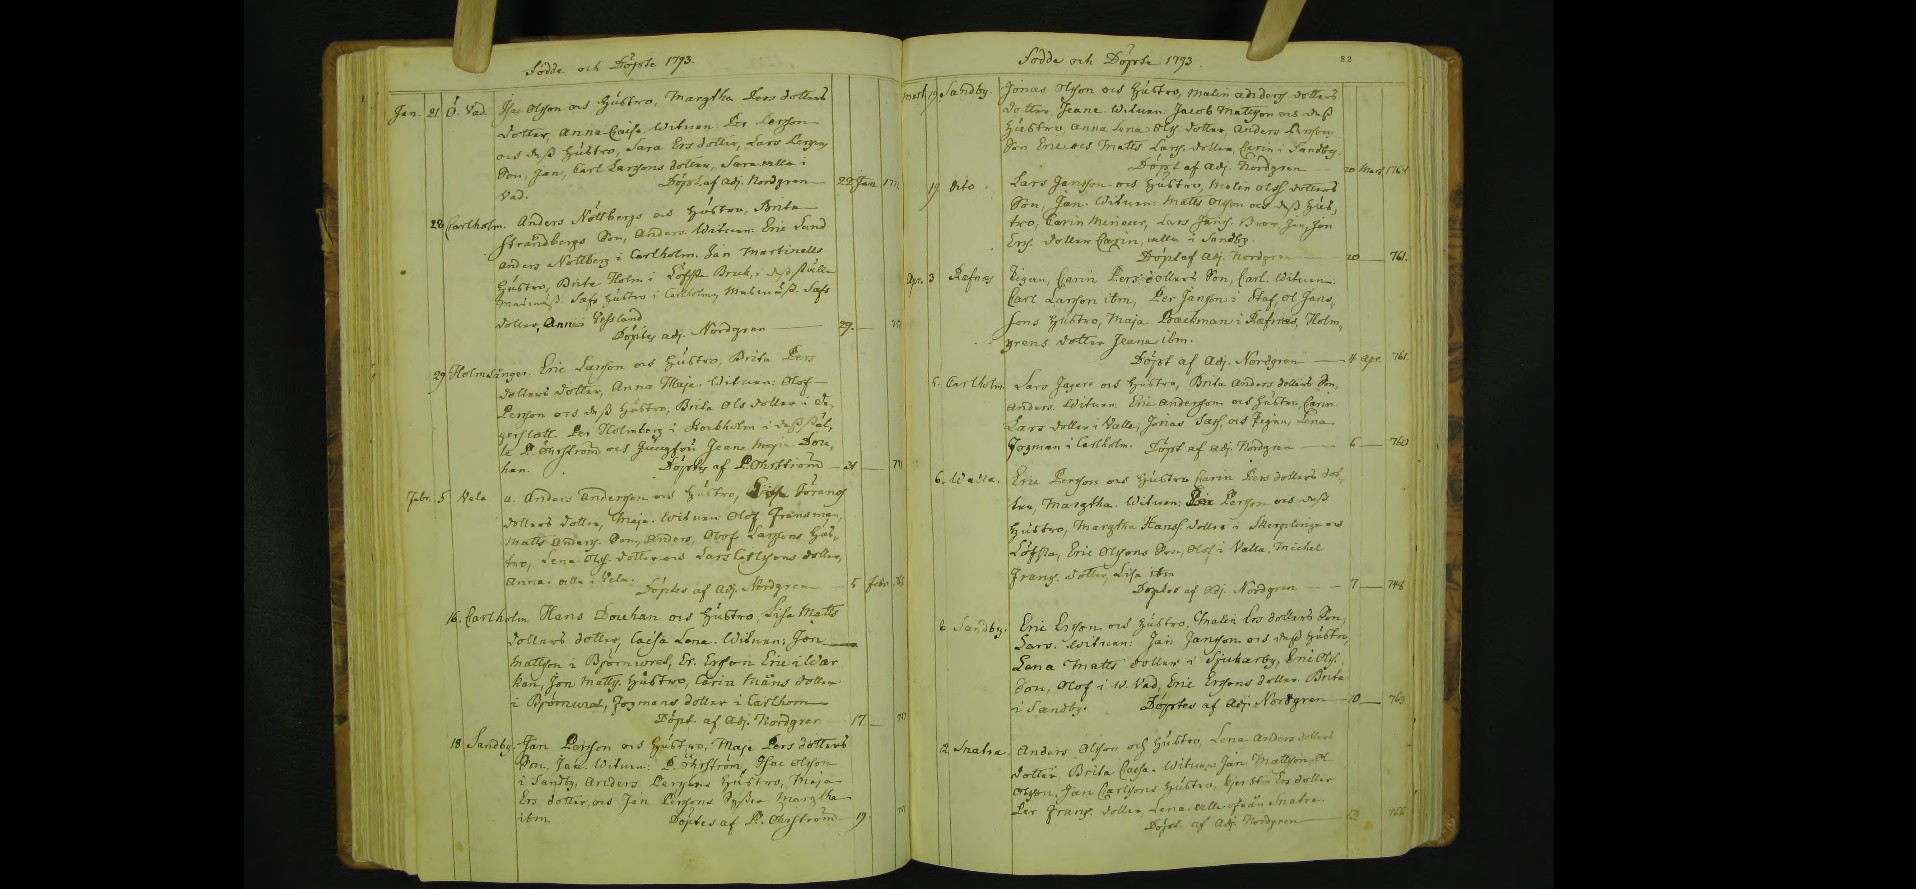 Födde och Döpte 1793.
Jan. 21. Ö. Vad. Isac Olsson och Hústro, Margtha Pers dotters
dotter, Anna Caisa. Witnen: Per Persson
och dess Hústro, Sara Ers dotter, Lars Perssons
Son, Jan, Carl Larssons dotter, Sara alla i
Vad. Döpt. af Adj. Nordgren 22 Jan.
28 Carlholm. Anders Nöttbergs och Hústro, Brita
Strandbergs Son, Anders. Witnen: Eric Lund
Anders Nöttberg i Carlholm. Jan Martinells
Hústro, Brita Holm i Löfsta Bruk, i dess ställe
Hústro i Carlholm,
dotter, Anna
Döptes adj. Nordgren 29.
29 Holmsänger. Eric Larsson och Hústro, Brita Pers
dotters dotter, Anna Maja. Witnen: Olof
Persson och dess Hústro, Brita Ols dotter i
Per Holmberg i Stockholm i dess stäl,
le P. Öhrström och Jungfru Jeane Maja Dou,
han. Döptes af P. Öhrström 31
Febr. 5 Vela u. Anders Andersson och Hústro,
dotters dotter, Maja. Witnen Olof Fransman,
Matts Anders. Son, Anders, Olof Larssons Hús,
tro, Lena Ols. dotter och Lars Carlssons dotter,
Anna. alla i Vela. Döptes af Adj. Nordgren 5 Febr.
16. Carlholm Hans Douhan och Hústro, Lisa Matts
dotters dotter, Caisa Lena. Witnen: Jon
Mattson i Björnwed, Er. Ersson Eric i Wär
kan, Jon Matts. Hústro, Carin Måns dotter
i Björnwed, Zogmans dotter i Carlholm
Döpt. af Adj. Nordgren 17.
18 Sandby. Jan Persson och Hústro, Maja Pers dotters
Son, Jan. Witnen: P. Öhrström, Isac Olsson
i Sandby, Anders Perssons Hústro, Maja
Ers dotter, och Jan Perssons Syster Margtha
ibm. Döptes af P. Öhrström 19.
Födde och Döpte 1793. 82
Mart. 19 Sandby. Jonas Olsson och Hústro, Malin Anders dotters
dotter, Jeane. Witnen: Jacob Mattson och dess
Hústro, Anna Lena Ols. dotter, Anders Perssons
Son Eric och Matts Lars. dotter, Carin i Sandby.
Döpt. af Adj. Nordgren 20 Mart. 1761
19 dito Lars Jansson och Hústro, Malin Ols. dotters
Son, Jan. Witnen: Matts Olsson och dess Hús,
tro, Carin Lars Jans. Bror, Jan, Jon
Ers. dotter Carin, alla i Sandby.
Döpt af Adj. Nordgren 20 761.
Apr. 3 Räfnäs Pigan, Carin Pers dotters Son, Carl. Witnen.
Carl Larsson ibm, Per Janson i Staf, Ol Jans,
sons Hústro, Maja Backman i Räfnäs, Holm,
grens dotter Jeane ibm.
Döpt af Adj. Nordgren 4 Apr. 761.
5. Carlholm Lars Jagare och Hústro, Brita Anders dotters Son,
Anders. Witnen. Eric Andersson och Hústro, Carin
Lars dotter i Valla, Jonas och Pigan, Lena
Zogman i Carlholm. Döpt af Adj. Nordgren 6 760
6. Walla. Eric Persson och Hústro Carin Pers dotters dot,
ter, Margtha. Witnen: Per Persson och dess
Hústro, Margtha Hans. dotter i
Löfsta, Eric Olssons Son, Olof i Valla, Michel
Frans. dotter, Lisa ibm
Döptes af Adj. Nordgren 7 748
8 Sandby. Eric Ersson och Hústro, Malin Ers dotters Son,
Lars. Witnen: Jan Jansson och dess Hústro,
Lena Matts dotter i Sjukarby, Eric Ols.
Son, Olof i W. Vad, Eric Erssons dotter Brita
i Sandby. Döptes af Adj. Nordgren 10 763
12. Snatra. Anders Olsson och Hústro, Lena Anders dotters
dotter, Brita Caisa. Witnen Jan Mattsson, Ol
Olsson, Jan Carlssons Hústro, Kjerstin Ers dotter
Per Frans. dotter, Lena. alla ifrån Snatra.
Döpt. af Adj. Nordgren 13 766